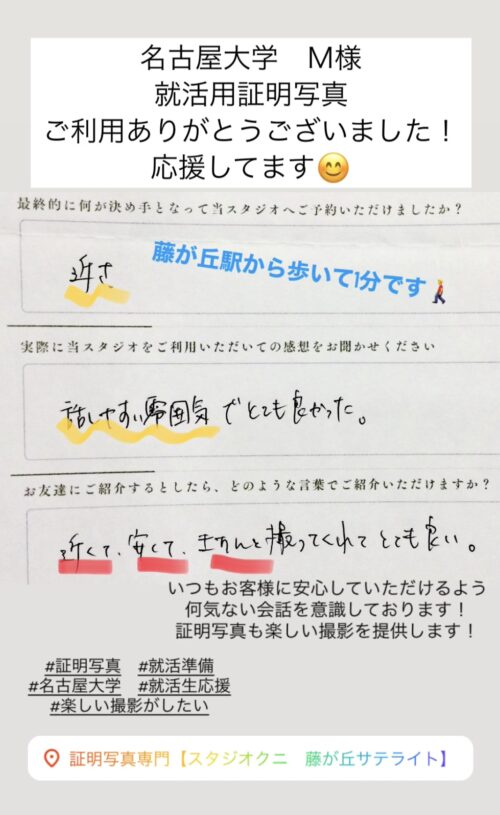 名古屋大学　M様
就活用証明写真
ご利用ありがとうございました！
応援してます😊
最終的に何が決め手となって当スタジオへご予約いただけましたか？
近さ
藤が丘駅から歩いて1分です🚶
実際に当スタジオをご利用いただいての感想をお聞かせください
話しやすい雰囲気でとても良かった。
お友達にご紹介するとしたら、どのような言葉でご紹介いただけますか？
近くて、安くて、きちんと撮ってくれてとても良い。
いつもお客様に安心していただけるよう
何気ない会話を意識しております！
証明写真も楽しい撮影を提供します！
#証明写真　#就活準備
#名古屋大学　#就活生応援
#楽しい撮影がしたい
証明写真専門【スタジオクニ　藤が丘サテライト】